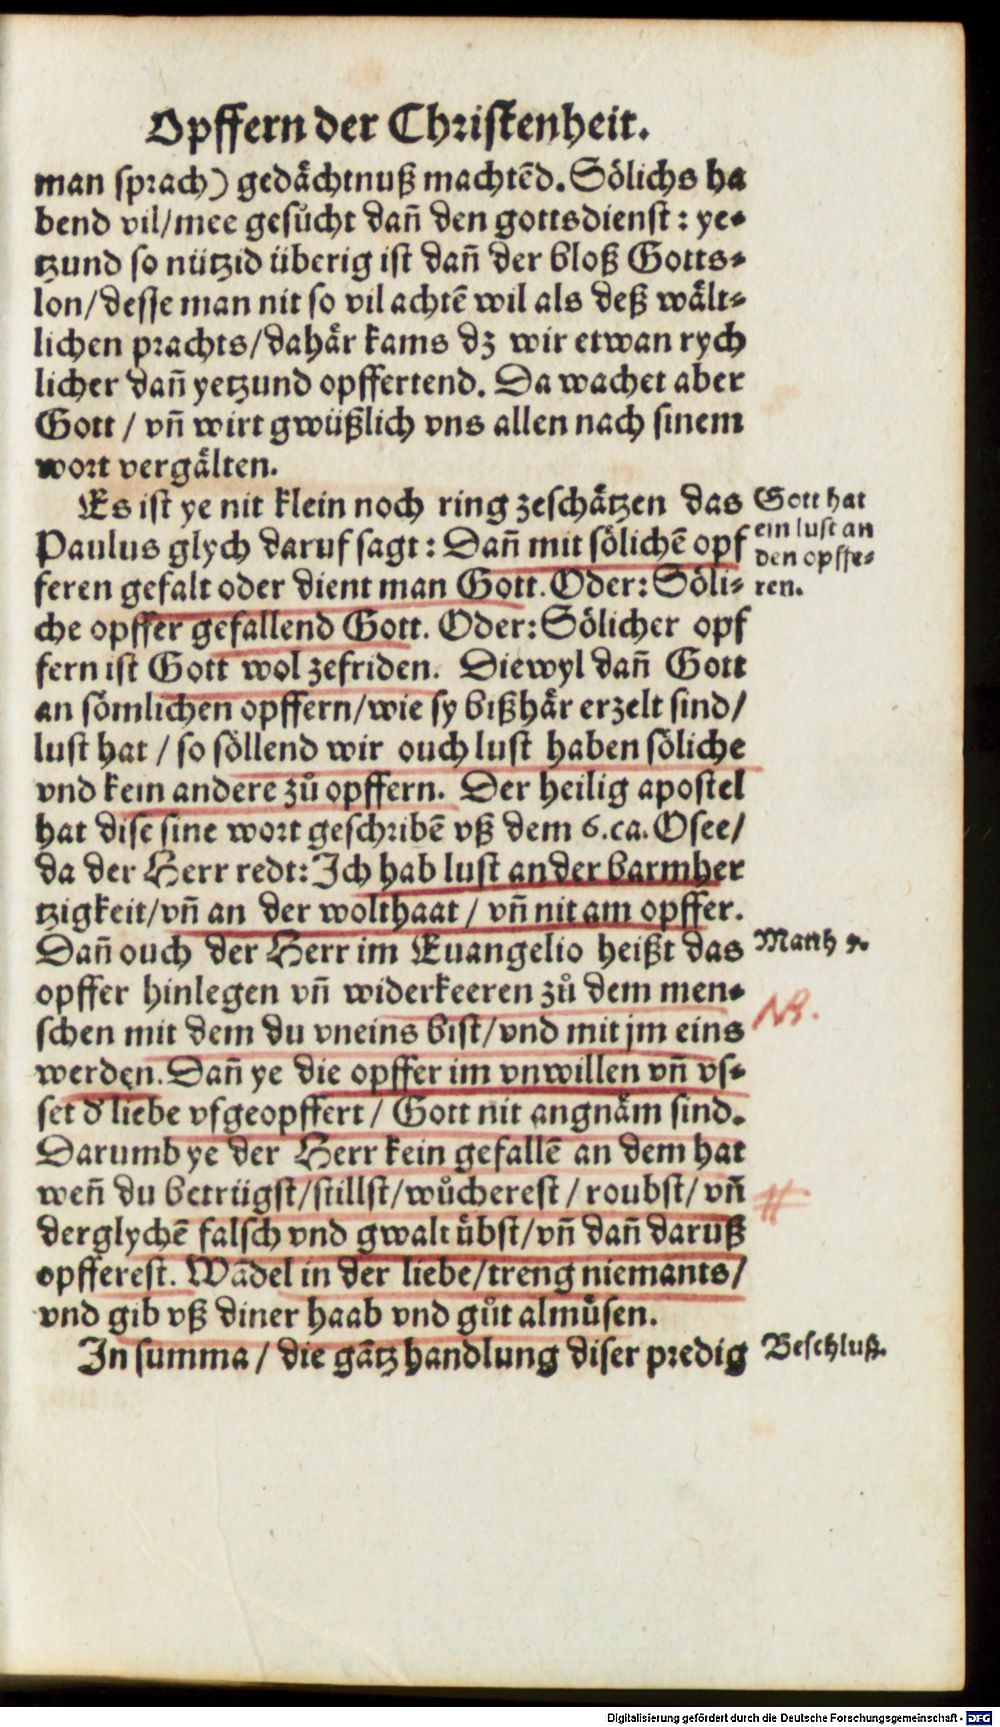 Opffern der Christenheit.
man sprach) gedaͤchtnuß machtēd. Soͤlichs ha
bend vil/mee gesuͦcht dañ den gottsdienst: ye-
tzund so nützid überig ist dañ der bloß Gotts-
lon/desse man nit so vil achtē wil als deß waͤlt-
lichen prachts/dahaͤr kams dz wir etwan rych
licher dañ yetzund opffertend. Da wachet aber
Gott / vñ wirt gwüßlich vns allen nach sinem
wort vergaͤlten.
Es ist ye nit klein noch ring zeschaͤtzen das
Gott hat
ein lust an
den opffe-
ren.
Paulus glych daruf sagt: Dañ mit soͤlichē opf
feren gefalt oder dient man Gott. Oder: Soͤli-
che opffer gefallend Gott. Oder: Soͤlicher opf
fern ist Gott wol zefriden. Diewyl dañ Gott
an soͤmlichen opffern/wie sy bißhaͤr erzelt sind/
lust hat / so soͤllend wir ouch lust haben soͤliche
vnd kein andere zuͦ opffern. Der heilig apostel
hat dise sine wort geschribē vß dem 6.ca. Osee/
da der Herr redt: Ich hab lust an der barmher
tzigkeit/vñ an der wolthaat / vñ nit am opffer.
Dañ ouch der Herr im Euangelio heißt das
Matth 5.
opffer hinlegen vñ widerkeeren zuͦ dem men-
schen mit dem du vneins bist/vnd mit jm eins
NB.
werden. Dañ ye die opffer im vnwillen vñ vs-
set d' liebe vfgeopffert / Gott nit angnaͤm sind.
Darumb ye der Herr kein gefallē an dem hat
weñ du betrügst/stillst/wuͦcherest / roubst/ vñ
derglychē falsch vnd gwalt uͤbst/vñ dañ daruß
opfferest. Wādel in der liebe/treng niemants/
vnd gib vß diner haab vnd guͦt almuͤsen.
In summa / die gātz handlung diser predig
Beschluß.
Digitalisierung gefördert durch die Deutsche Forschungsgemeinschaft - DFG